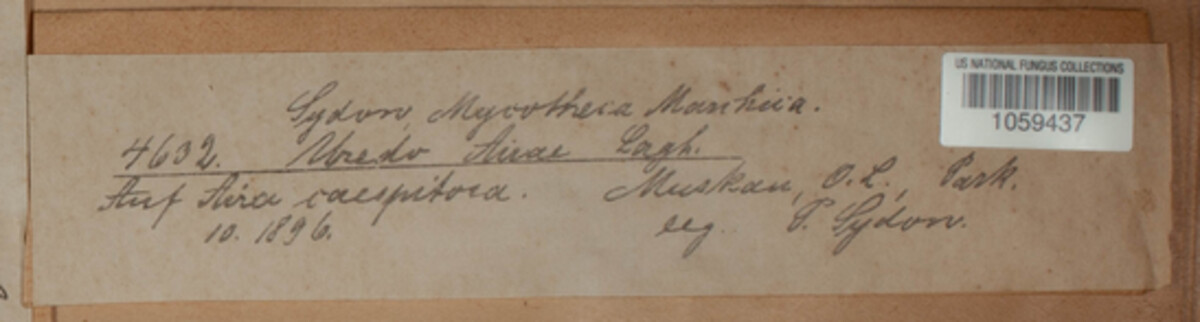 Sydow, Mycotheca Marchica.
4632. Uredo Airae Lagh.
Auf Aira caespitosa. Muskau, O.L., Park.
10. 1896. leg. P. Sydow.
US NATIONAL FUNGUS COLLECTIONS
1059437